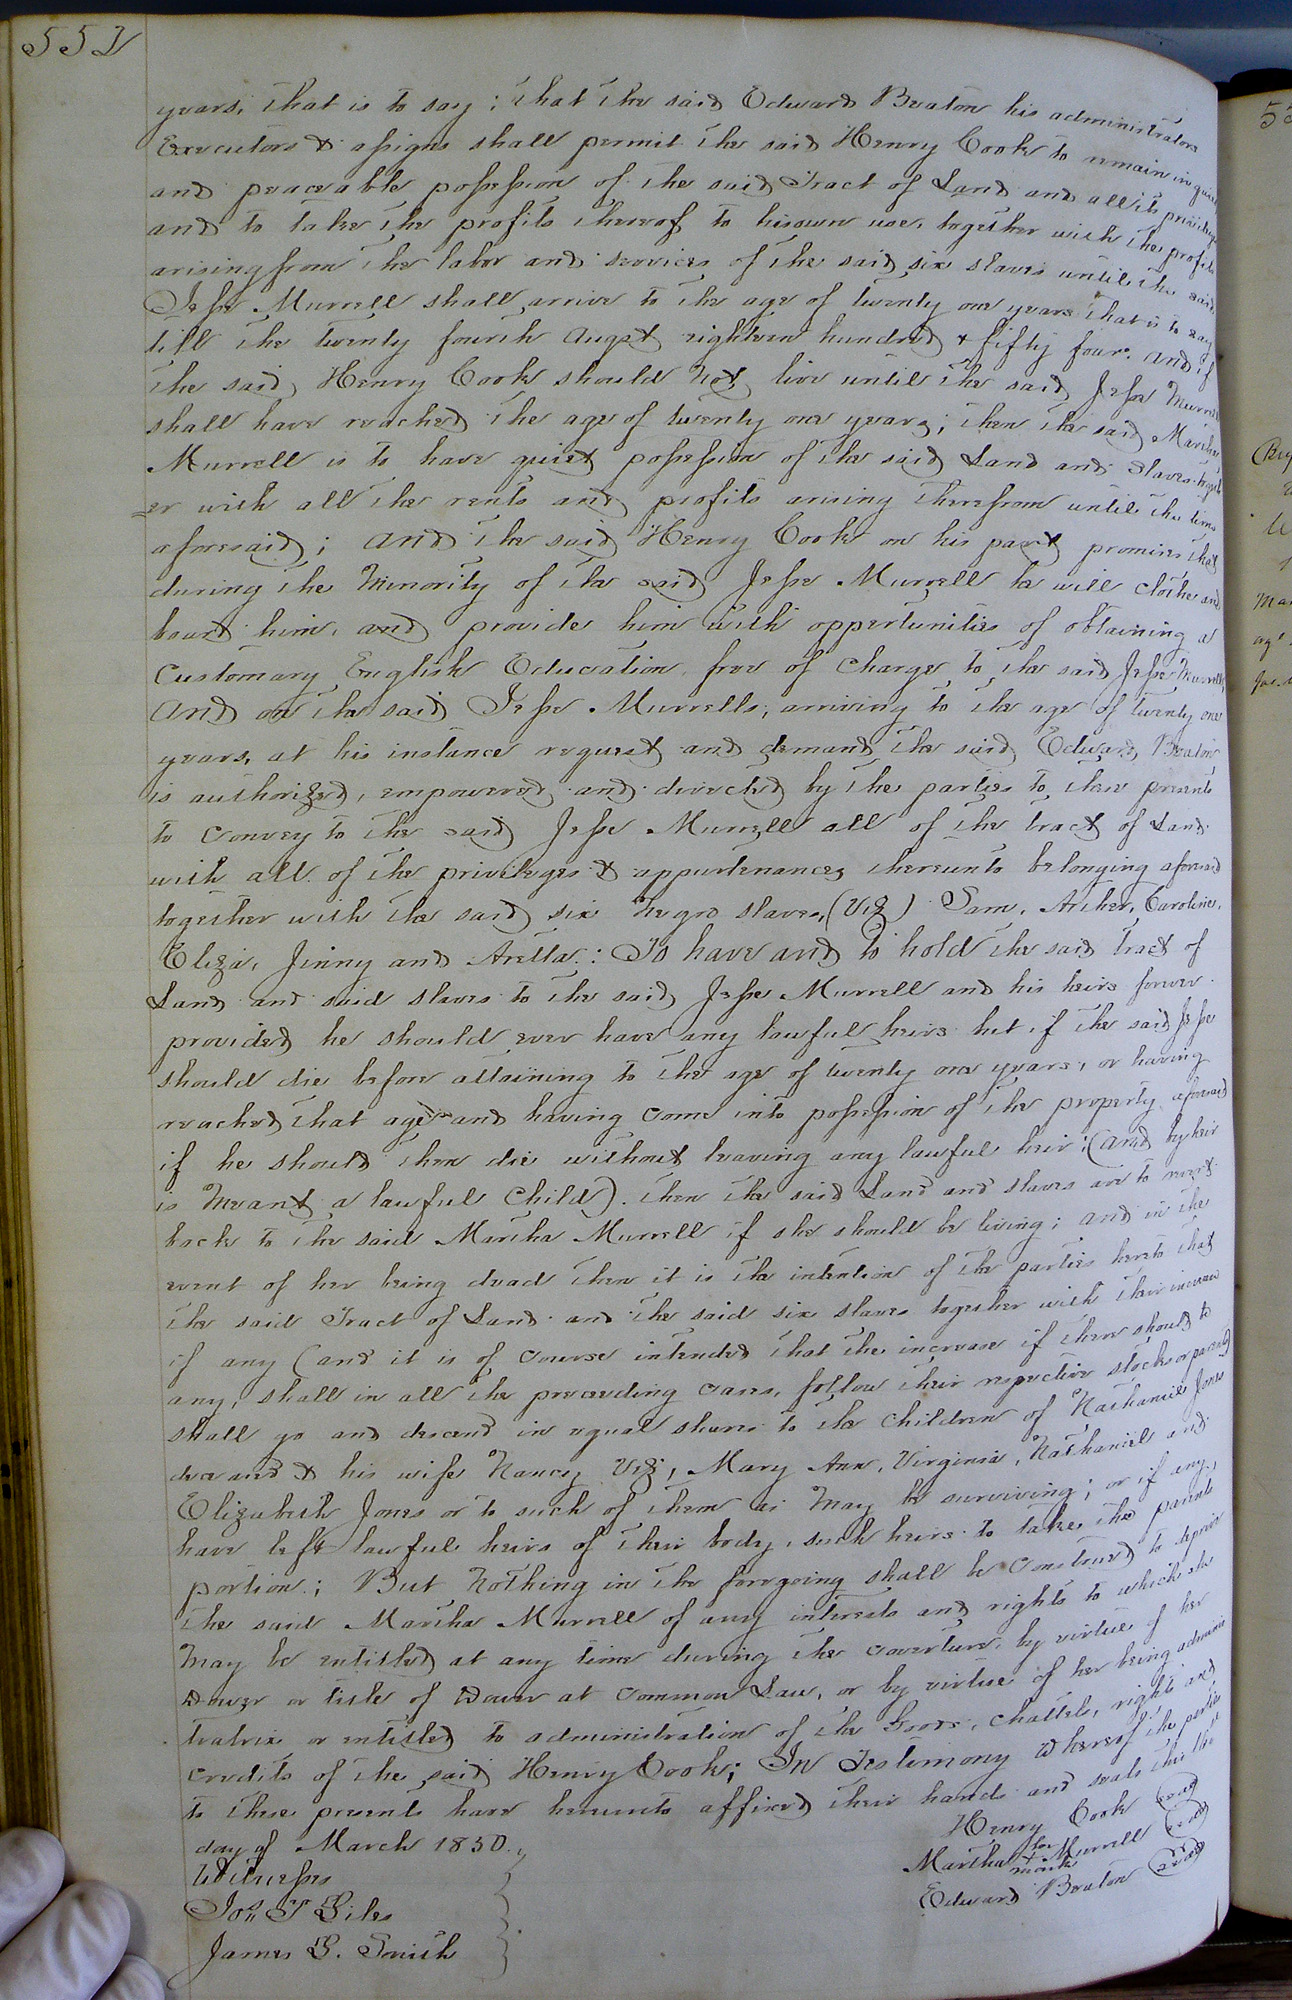 552
years, that is to say; that the said Edward Beaton his administrators
Executors & assigns shall permit the said Henry Cook to remain in quiet
and peaceable possession of the said Tract of Land and all its privileges
and to take the profits thereof to his own use, together with the profits
arising from the labor and services of the said six slaves until the said
Jesse Murrell shall arrive to the age of twenty one years that is to say
till the twenty fourth Augst eighteen hundred & fifty four. And if
the said Henry Cook should not live until the said Jesse Murrell
shall have reached the age of twenty one years; then the said Martha
Murrell is to have quiet possession of the said Land and slaves togeth
=er with all the rents and profits arising therefrom until the time
aforesaid; and the said Henry Cook on his part promises that
during the Minority of the said Jesse Murrell he will clothe and
board him, and provide him with oppertunities of obtaining a
Customary English Education free of charge to the said Jesse Murrell,
and on the said Jesse Murrells, arriving to the age of twenty one
years, at his instance request and demand the said Edward Beaton
is authorized, empowered and directed by the parties to these presents
to convey to the said Jesse Murrell all of the tract of Land
with all of the privileges & appurtenances thereunto belonging aforesaid
together with the said six Negro slaves, (Viz) Sam, Archer, Caroline,
Eliza, Jinny and Arella: To have and to hold the said tract of
Land and said slaves to the said Jesse Murrell and his heirs forever.
provided he should ever have any lawful heirs but if the said Jesse
should die before attaining to the age of twenty one years, or having
reached that age and having come into possession of the property aforesaid
if he should then die without leaving any lawful heir: (and by heir
is Meant a lawful Child). then the said Land and slaves are to revert
back to the said Martha Murrell if she should be living; and in the
event of her being dead then it is the intention of the parties hereto that
the said Tract of Land and the said six slaves together with their increase
if any (and it is of course intended that the increase if there should be
any, shall in all the preceeding cases, follow their respective stocks or parents)
shall go and descend in equal shares to the Children of Nathaniel Jones
deceased & his wife Nancy Viz, Mary Ann, Virginia, Nathaniel and
Elizabeth Jones or to such of them as May be surviving; or if any,
have left lawful heirs of their body, such heirs to take the parents
portion; But Nothing in the foregoing shall be construed to deprive
the said Martha Murrell of any interests and rights to which she
May be entitled at any time during the coverture, by virtue of her
Dower or title of Dower at Common Law, or by virtue of her being adminis
tratrix or entitled to administration of the Goods, chattels, rights and
credits of the said Henry Cook; In Testimony Whereof the parties
to these presents have hereunto affixed their hands and seals this the
day of March 1850.
Henry Cook (seal)
Martha her mark Murrell (seal)
Edward Beaton (seal)
Witnesses
Jon T Giles
James G. Smith